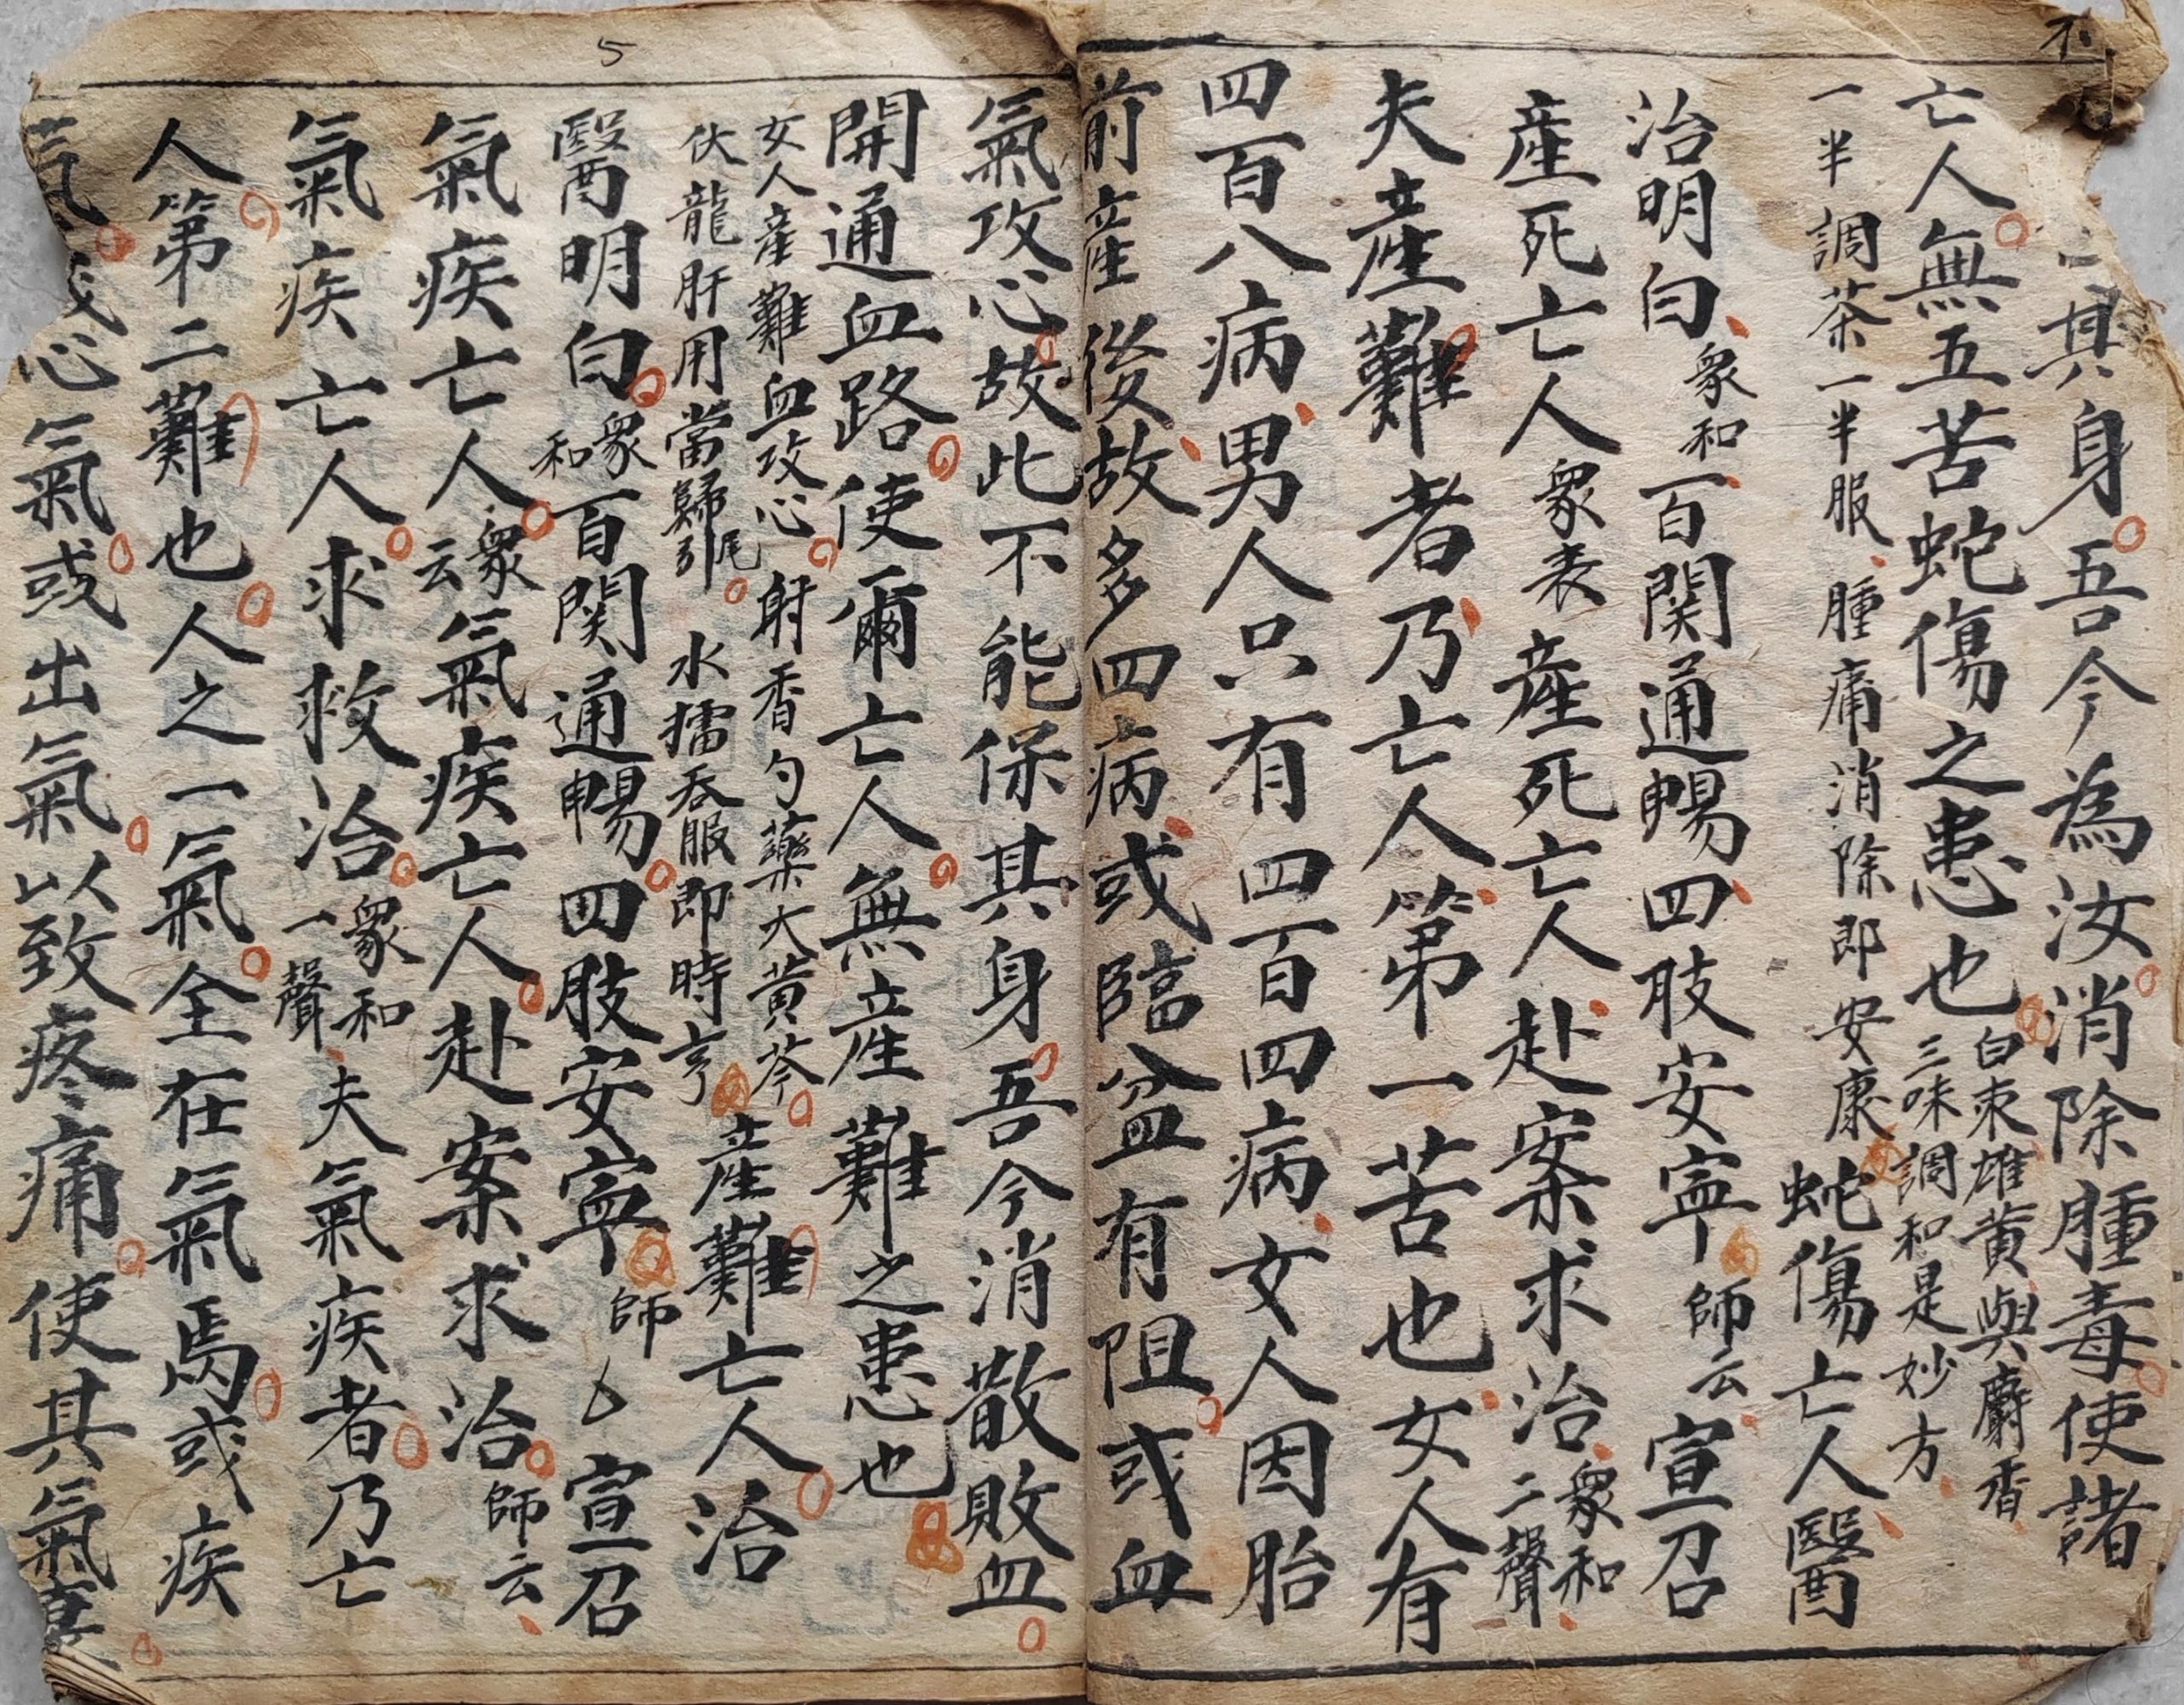 不
其身吾今為汝消除腫毒使諸
亡人無五苦蛇傷之患也
白朿雄黄與麝香
三味調和是妙方
一半調茶一半服腫痛消除即安康
蛇傷亡人醫
治明白衆和百関通暢四肢安寧師云宣召
産死亡人衆表産死亡人赴案求治衆和二聲
夫産難者乃亡人第一苦也女人有
四百八病男人只有四百四病女人因胎
前産後故多四病或臨盆有阻或血
氣攻心故此不能保其身吾今消散敗血
開通血路使爾亡人無産難之患也
女人産難血攻心射香勺藥大黄芩
伏龍肝用當歸尾引水擂吞服即時亨
産難亡人治
醫明白衆和百関通暢四肢安寧師宣召
氣疾亡人衆云氣疾亡人赴案求治師云
氣疾亡人求救治衆和一聲夫氣疾者乃亡
人第二難也人之一氣全在氣焉或疾
心氣或出氣以致疼痛使其氣
5